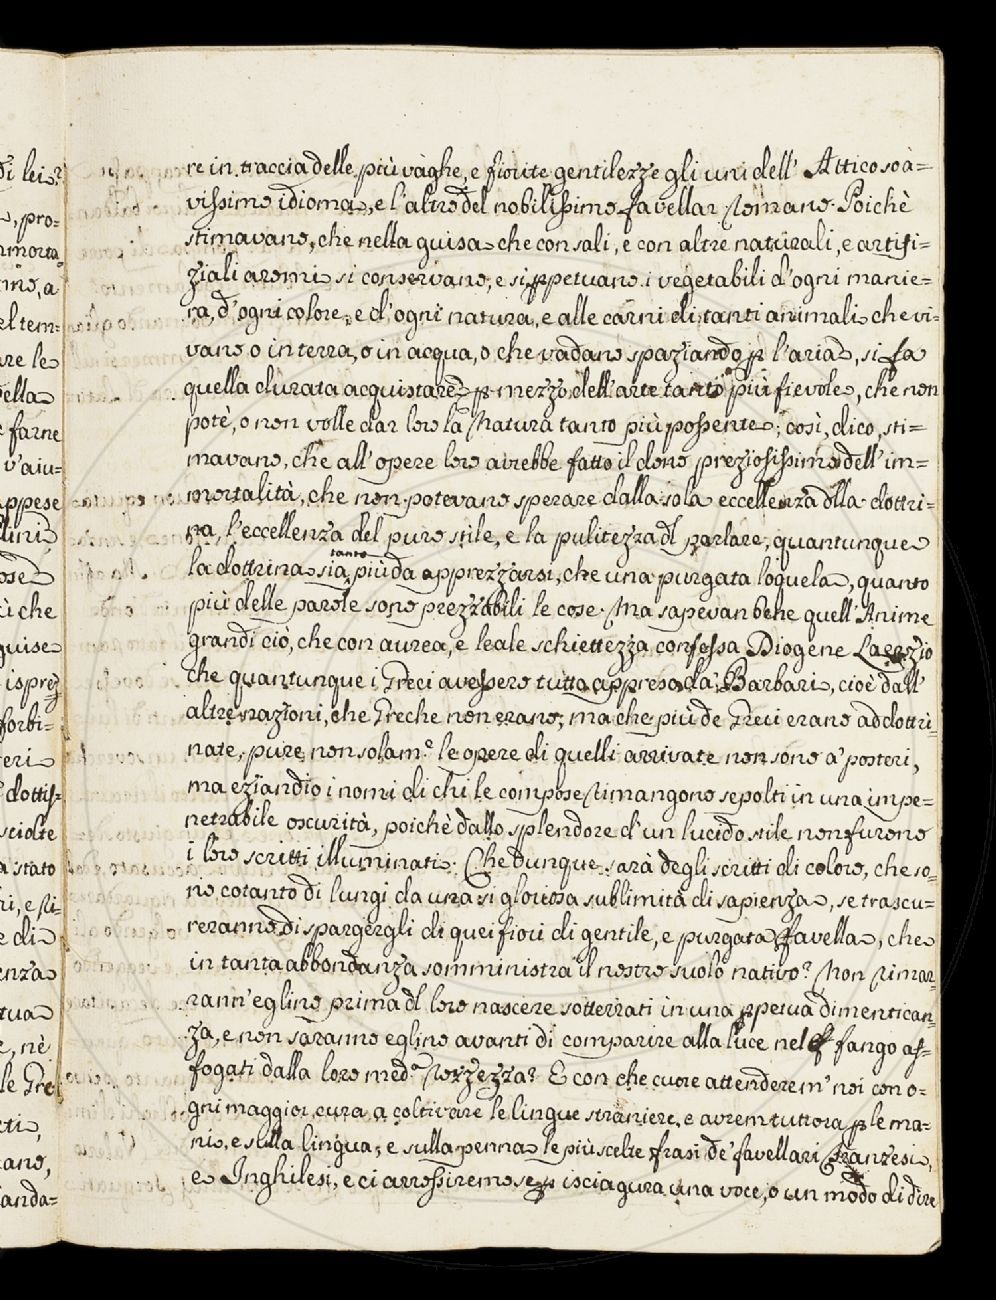 re in traccia delle più vaghe, e fiorite gentilezze gli uni dell' Attico soà=
vissimo idioma, e l'altro del nobilissimo favellar Romano. Poichè
stimavano, che nella guisa che con sali, e con altre naturali, e artifi=
ziali aromi si conservano, e si ꝑpetuano i vegetabili d'ogni manie=
ra, d'ogni colore, e d'ogni natura, e alle carni di tanti animali che vi=
vano o in terra, o in acqua, o che vadano spaziando ꝑ l'aria, si fa
quella durata acquistare ꝑ mezzo dell'arte tanto più fievole, che non
potè, o non volle dar loro la Natura tanto più possente; così, dico, sti=
mavano, che all'opere loro avrebbe fatto il dono preziosissimo dell'im=
mortalità, che non potevano sperare dalla sola eccellenza dlla dottri=
na, l'eccellenza del puro stile, e la pulitezza dl parlare, quantunque
la dottrina sia tanto più da apprezzarsi, che una purgata loquela, quanto
più delle parole sono prezzabili le cose. Ma sapevan bene quell'Anime
grandi ciò, che con aurea, e leale schiettezza confessa Diogene Laerzio
che quantunque i Greci avessero tutto appreso da' Barbari, cioè dall'
altre nazioni, che Greche non erano; ma che più de Greci erano addottri=
nate, pure non solam.e le opere di quelli arrivate non sono a' posteri,
ma eziandio i nomi di chi le compose rimangono sepolti in una impe=
netrabile oscurità, poichè dallo splendore d'un lucido stile non furono
i loro scritti illuminati. Che dunque sarà degli scritti di coloro, che so=
no cotanto di lungi da una sì gloriosa sublimità di sapienza, se trascu=
reranno di spargergli di quei fiori di gentile, e purgata favella, che
in tanta abbondanza somministra il nostro suolo nativo? Non rimar=
rann'eglino prima dl loro nascere sotterrati in una ꝑpetua dimentican=
za, e non saranno eglino avanti di comparire alla luce nel fango af=
fogati dalla loro med.a rozzezza? E con che cuore attenderem' noi con o=
gni maggior cura a coltivare le lingue straniere, e avrem tuttora ꝑ le ma=
ni, e sulla lingua, e sulla penna le più scelte frasi de' favellari Franzesi,
e Inghilesi, e ci arrossiremo se ꝑ isciagura una voce, o un modo di dire